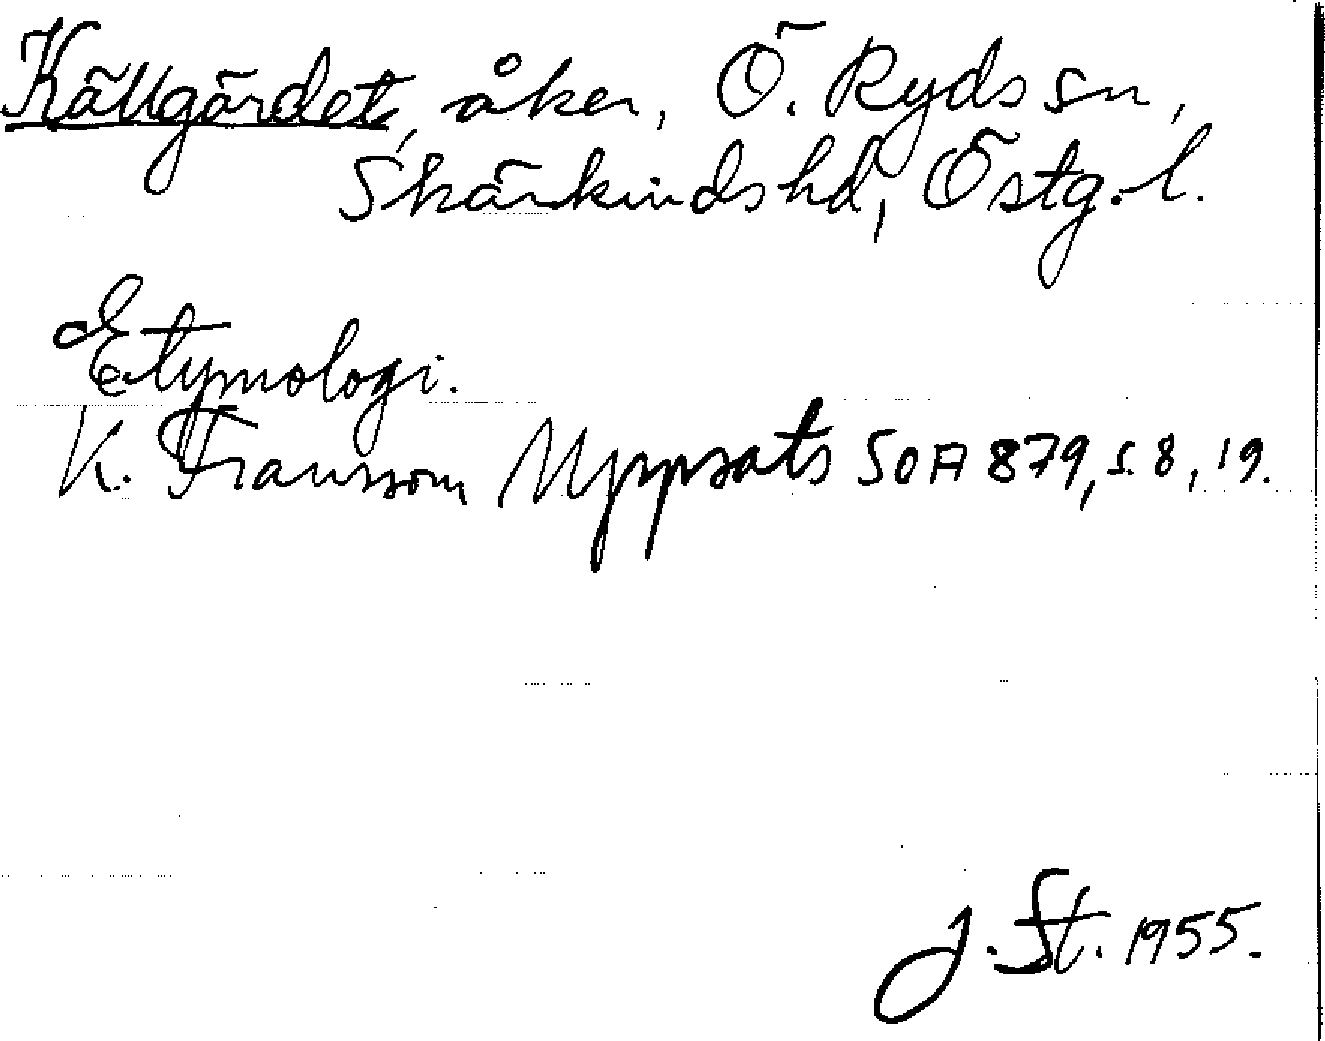 Källgärdet, åker, Ö. Ryds sn,
Skärkinds hd, Östg. l.
Etymologi.
K. Fransson Uppsats SOA 879, s. 8, 19.
J. St. 1955.